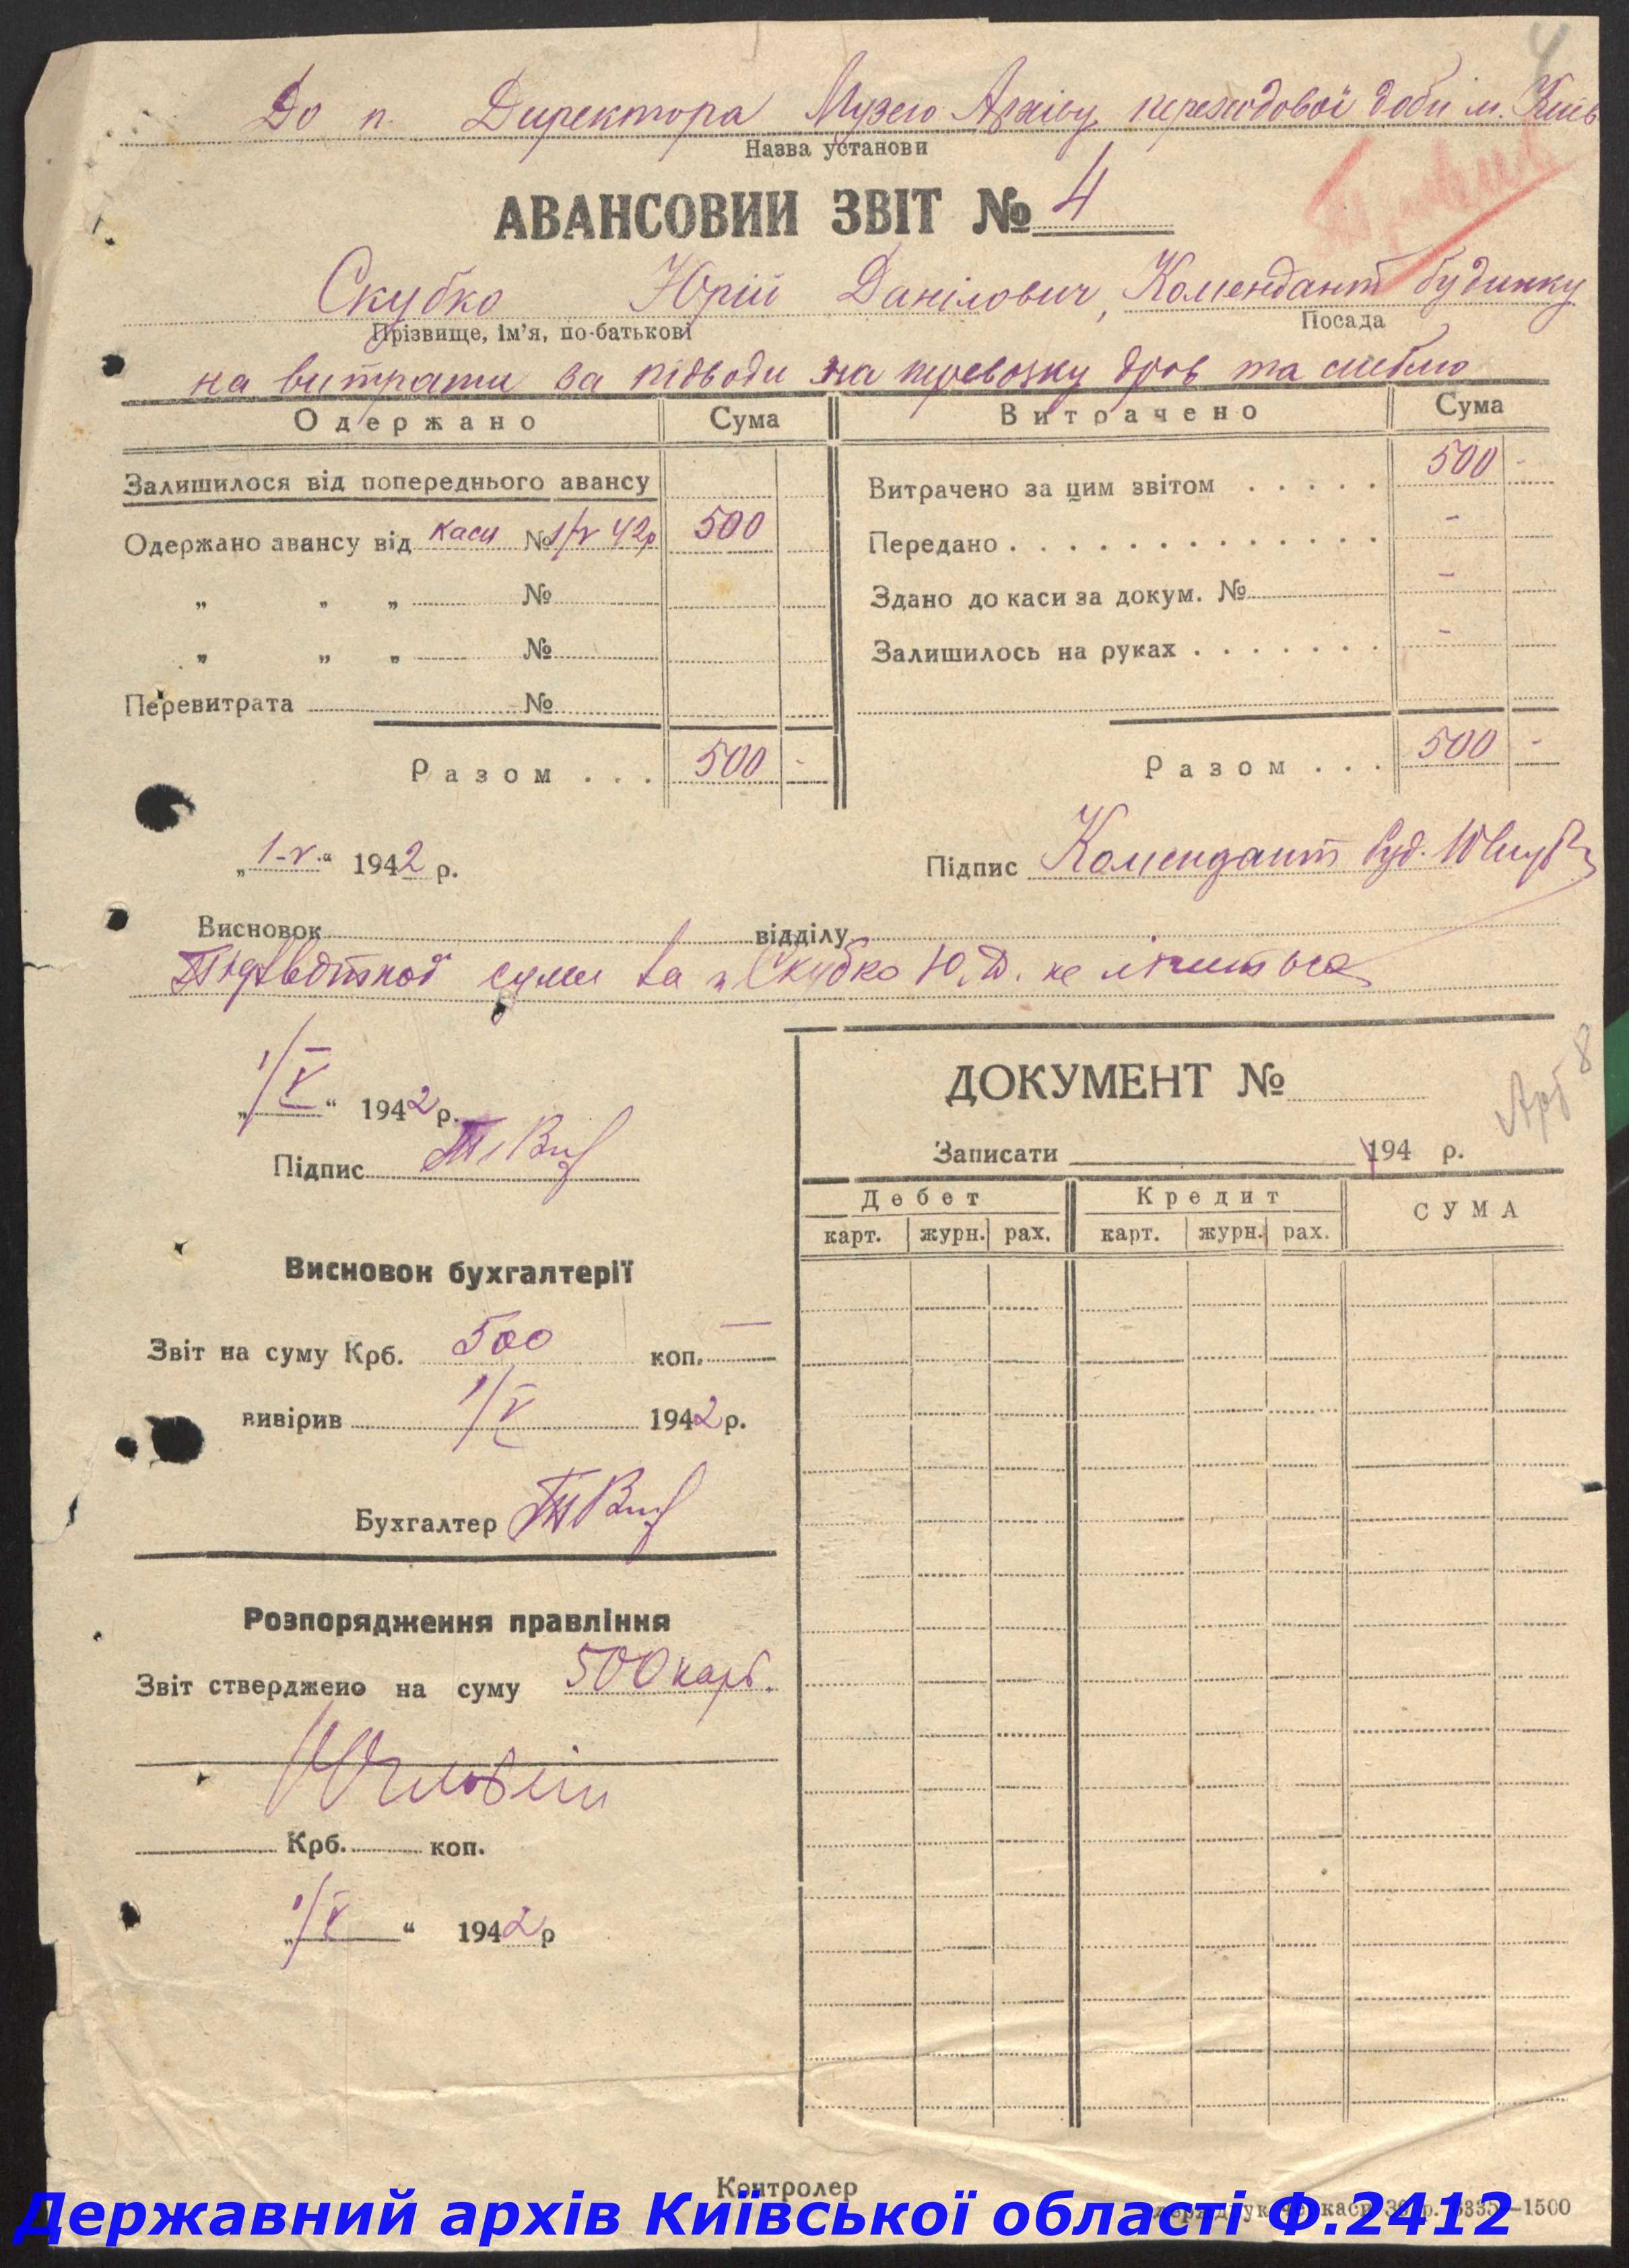 4
До п. Директора Музею Архіву переходової доби м. Київ
Назва установи
АВАНСОВИЙ ЗВІТ № 4
Скубко Юрій Данілович, Комендант будинку
Прізвище, ім'я, по-батькові Посада
на витрати за підводи на перевозку дров та
Одержано Сума Витрачено Сума
Залишилося від попереднього авансу Витрачено за цим звітом . . . . . 500 -
Одержано авансу від каси № 1/V 42р 500 Передано . . . . . . . . . . . . . -
„ „ „ № Здано до каси за докум. № -
„ „ „ № Залишилось на руках . . . . . . . -
Перевитрата №
Разом . . . 500 - Разом . . . 500 -
„1-V.“ 1942 р. Підпис Комендант буд.
Висновок відділу
суми за п Скубко Ю. Д. не лічиться
„1/V“ 1942 р.
Підпис
ДОКУМЕНТ №
Записати 194 р.
Дебет Кредит СУМА
карт. журн. рах. карт. журн. рах.
Висновок бухгалтерії
Звіт на суму Крб. 500 коп. —
вивірив 1/V 1942 р.
Бухгалтер
Розпорядження правління
Звіт стверджено на суму 500 карб.
Крб. коп.
„1/V“ 1942 р
Контролер
—1500
Державний архів Київської області Ф.2412